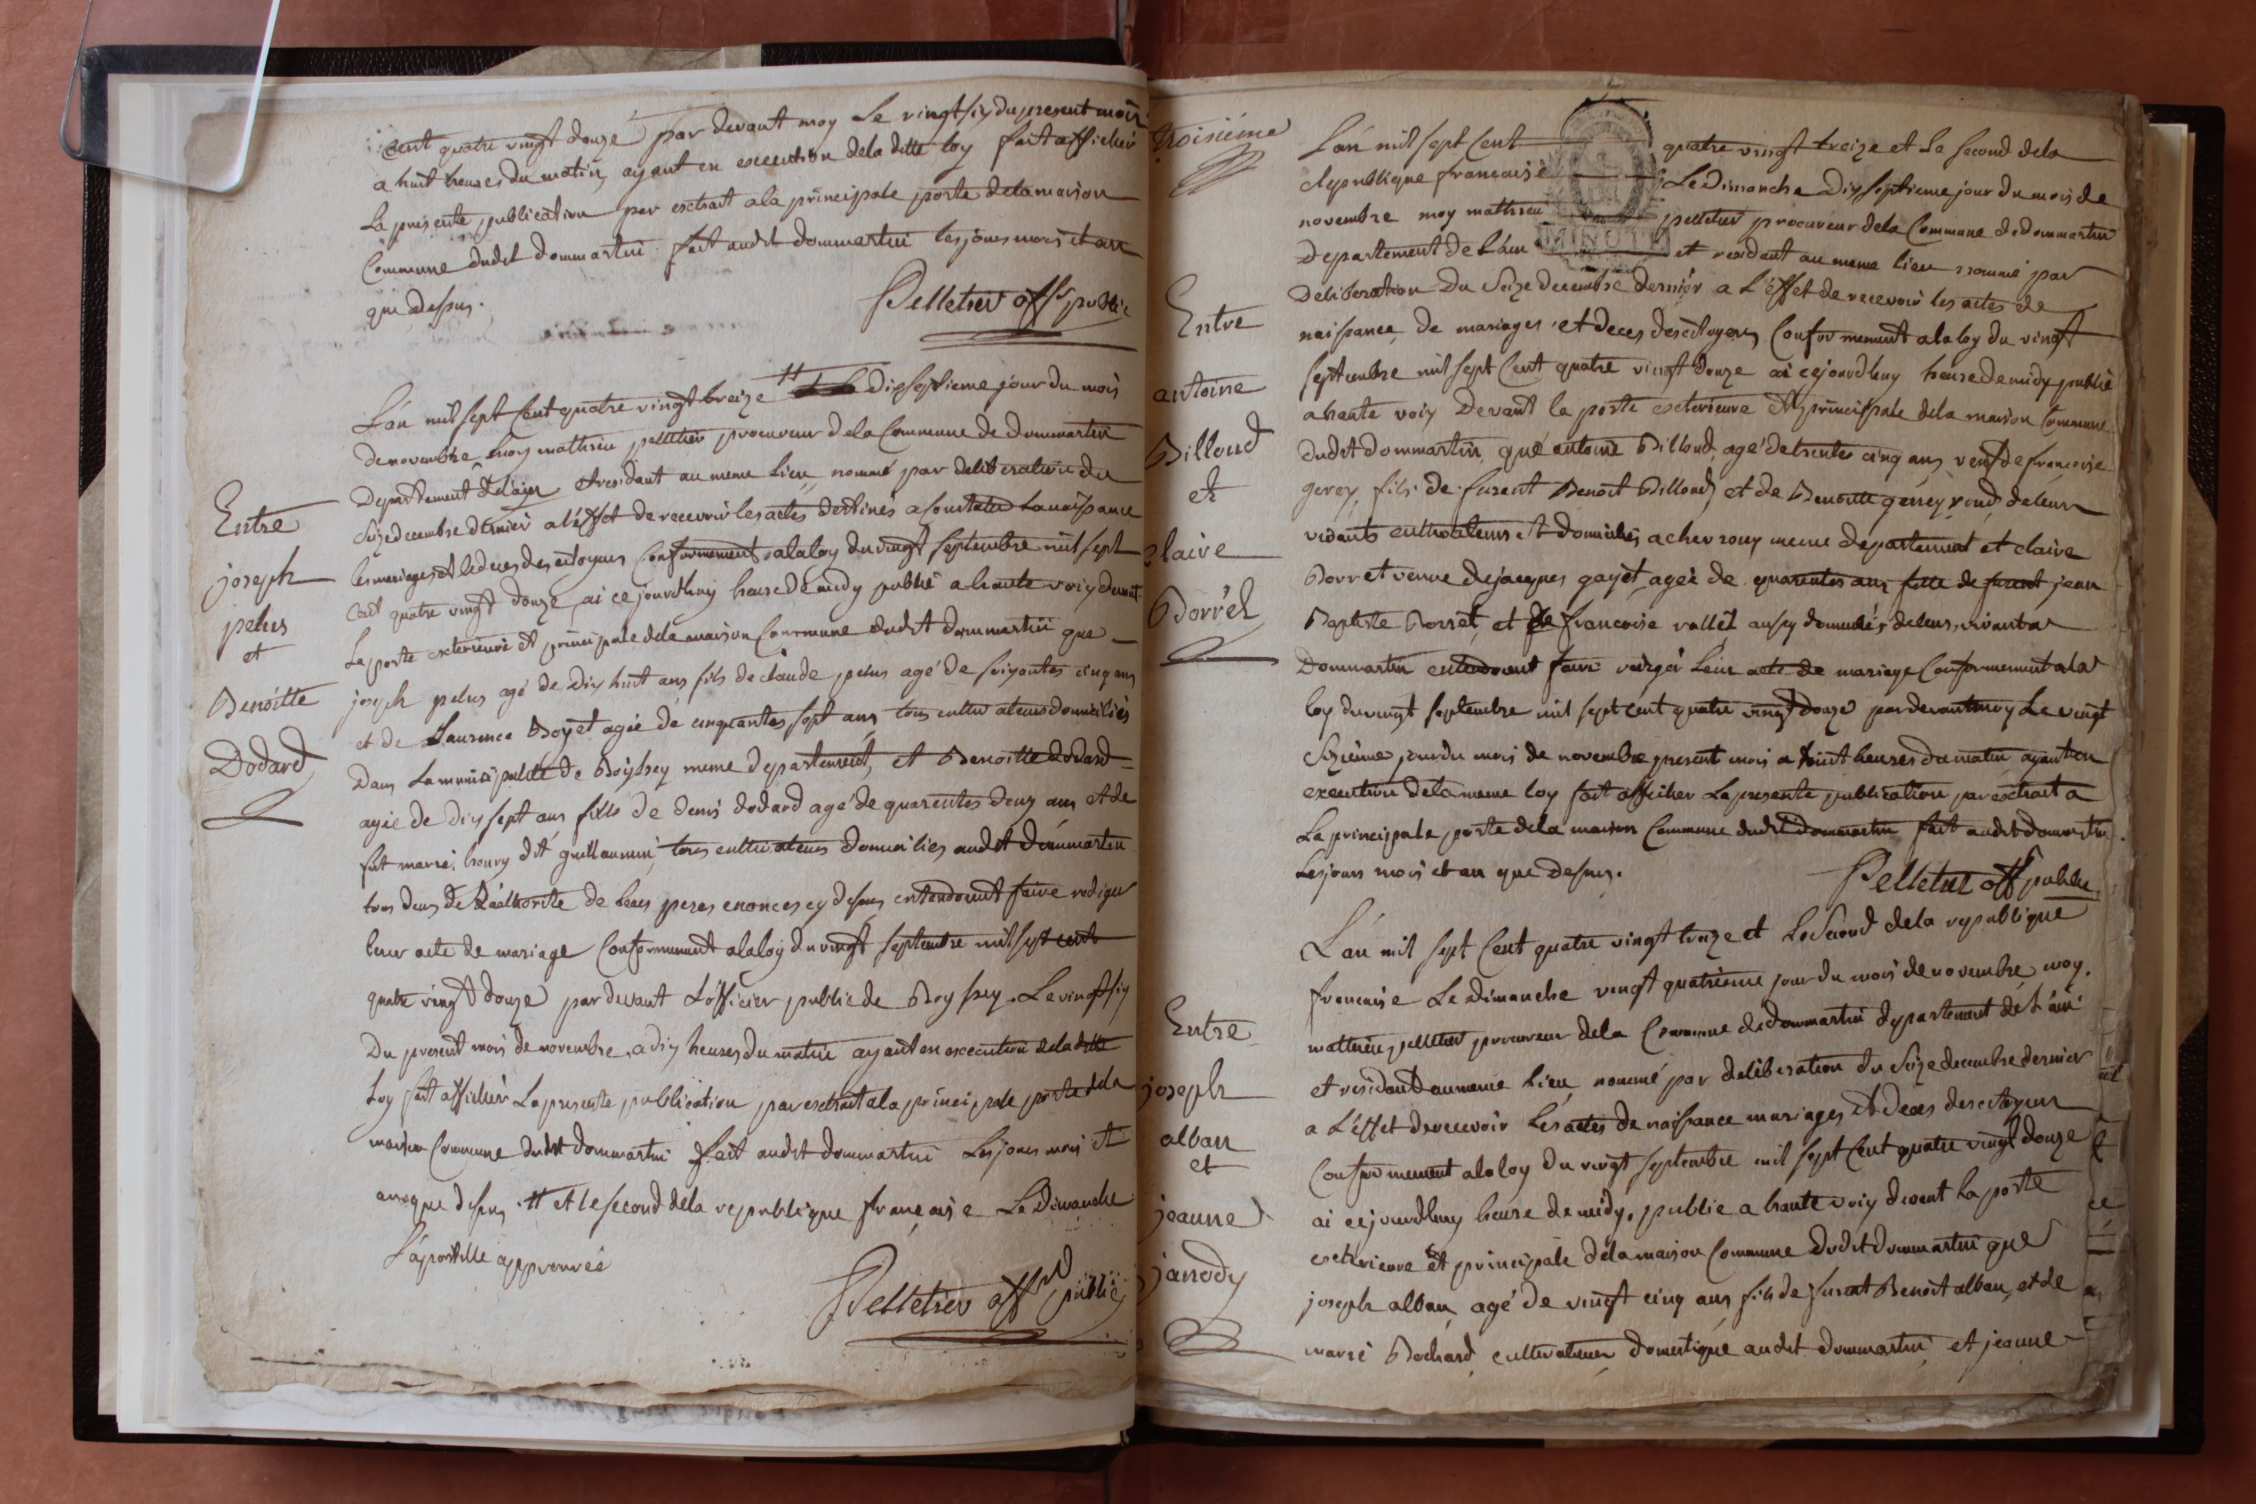 cent quatre vingt douze par devant moy Le vingt six du present mois
a huit heures du matin, ayant en execution dela ditte loy fait afficher
La presente publication par extrait ala principale porte dela maison
Commune dudit dommartin fait audit dommartin les jours mois et an
que dessus.
Pelletier offr public
L'an mil sept Cent quatre vingt treize # Dixseptieme jour du mois
de novembre moy mathieu pelletier procureur dela Commune de dommartin
Departement de lain et residant au meme lieu nommé par deliberation du
Seize decembre dernier a l'effet de recevoir les actes destinés a constater La naissance
les mariages et le deces des citoyens Conformement alaloy du vingt septembre mil sept
Cent quatre vingt douze, ai ce jourdhuy heure de midy publié a haute voix devant
La porte exterieure et principale dela maison Commune dudit dommartin que
Entre
joseph
pelus
et
Benoitte
Dodard
joseph pelus agé de Dix huit ans fils de claude pelus agé de soixantes cinq ans
et de Laurence Boyet agée de cinquantes sept ans tous cultivateurs domiciliés
Dans La municipalité de Boyssey meme departement, et Benoitte dodard
agée de dix sept ans fille de denis dodard agé de quarentes deux ans et de
fut marie, tous cultivateurs domicilies audit dommartin
tous deux de Lauthorité de leurs peres enonces cy dessus entendoient faire rediger
leur acte de mariage Conformement alaloy du vingt septembre mil sept cent
quatre vingt douze par devant L'officier public de Boyssey. Le vingt six
Du present mois de novembre, a dix heures du matin ayant en execution dela ditte
Loy fait afficher La presente publication par extrait ala principale porte dela
maison Commune dudit dommartin fait audit dommartin Les jours mois et
an que dessus. # et le second déla republique françaisse Le Dimanche
L'apostille approuvée
Pelletier offr public
troisiéme
L'an mil sept Cent quatre vingt treize et Le second dela
Republique francaise Le Dimanche Dix septieme jour du mois de
novembre moy mathieu pelletier procureur dela Commune de dommartin
MINUTE
Departement de L'ain et residant au meme lieu nommé par
Deliberation Du Seize decembre dernier a L'effet de recevoir les actes de
naissance, de mariages et deces des citoyens Conformement alaloy du vingt
septembre mil sept Cent quatre vingt douze ai cejourdhuy heure de midy publié
a haute voix Devant la porte exterieure et principale dela maison Commune
Entre
antoine
Billoud
et
claire
Borrel
dudit dommartin, que antoine Billoud, agé de trentes cinq ans veuf de francoise
gerey, fils de furent Benoit Billoud, et de Benoitte gerrey, de leurs
vivants cultivateurs et domiciliés a chevroux meme departement et claire
Borret veuve de jacques gayet, agée de quarentes ans fille de furent jean
Baptiste Borret, et de francoise vallet aussy domiciliés de leurs vivants a
Dommartin entendoient faire rediger Leur acte de mariage Conformement ala
loy du vingt septembre mil sept cent quatre vingt douze par devant moy Le vingt
Sixieme jour du mois de novembre present mois a huit heures du matin ayant en
execution dela meme loy fait afficher La presente publication par extrait a
La principale porte dela maison Commune dudit dommartin fait audit dommartin
Les jours mois et an que dessus.
Pelletier offr public
L'an mil sept Cent quatre vingt treize et Le Second dela republique
francaise Le Dimanche vingt quatrieme jour du mois de novembre, moy
mathieu pelletier procureur dela Commune de Dommartin departement de L'ain
et residant au meme lieu, nommé par deliberation du Seize decembre dernier
a L'effet de recevoir Les actes de naissance mariages et deces des citoyens
Conformement alaloy du vingt septembre mil sept Cent quatre vingt douze
ai cejourdhuy heure de midy, publié a haute voix devant La porte
exterieure et principale dela maison Commune dudit dommartin que
Entre
joseph
alban
et
jeanne
janody
joseph alban agé de vingt cinq ans fils de furent Benoit alban, et de
marie Bochard cultivateur domestique audit dommartin, et jeanne